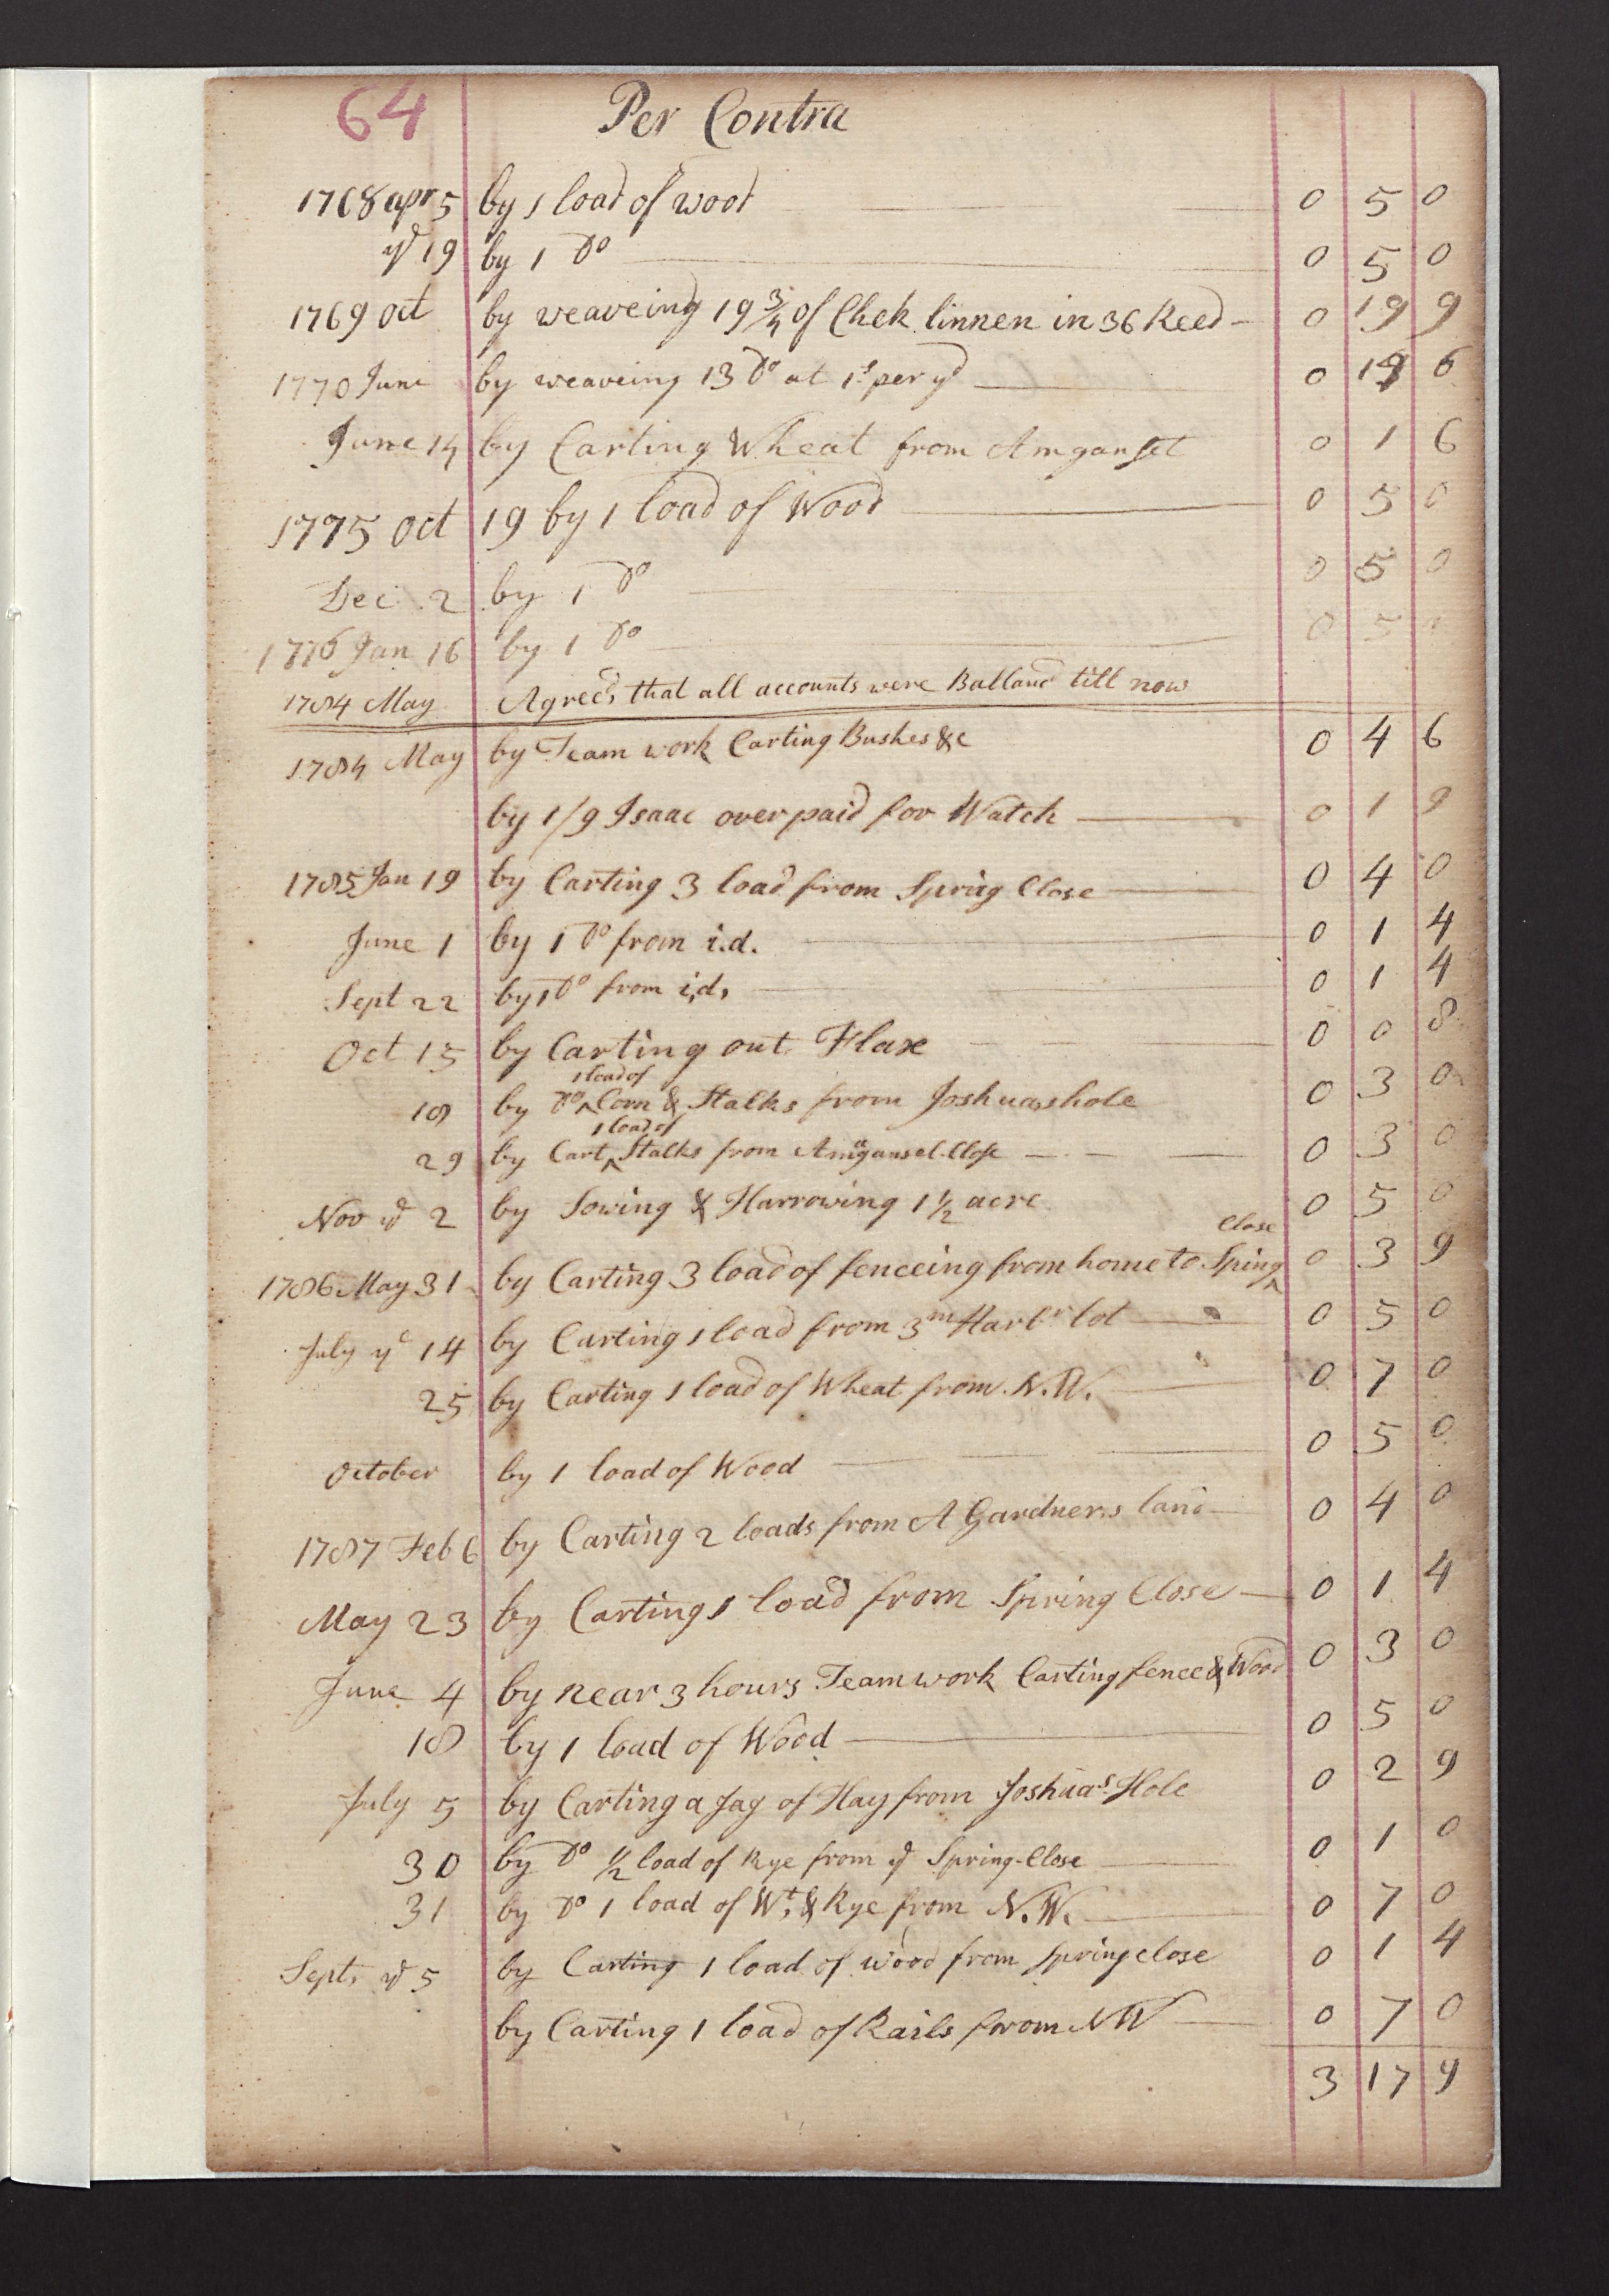 64 Per Contra
1768 apr 5 by 1 load of wood 0 5 0
yd 19 by 1 do 0 5 0
1769 Oct by weaveing 19 3/4 of Chek linnen in 36 Reed 0 19 9
1770 June by weaveing 13 do at 1s per yd 0 6
June 14 by Carting Wheat from Amganset 0 1 6
1775 Oct 19 by 1 load of Wood 0 5 0
Dec 2 by 1 do 0 5 0
1776 Jan 16 by 1 do 0 5
1784 May Agreed, that all accounts were Balland till now
1784 May by Team work Carting Bushes &c 0 4 6
by 1/9 Isaac over paid for Watch 0 1 9
1785 Jan 19 by Carting 3 load from Spring Close 0 4 0
June 1 by 1 do from i.d. 0 1 4
Sept 22 by 1 do from i,d, 0 1 4
Oct 15 by Carting out Flax 0 0 8
18 by do ^ 1 load of Corn & Stalks from Joshuashole 0 3 0
29 by Cart ^ 1 load of Stalks from Amagansel Close 0 3 0
Nov yd 2 by Sowing & Harrowing 1 1/2 acre 0 5 0
1786 May 31 by Carting 3 load of fenceing from home to Sping ^ Close 0 3 9
July ye 14 by Carting 1 load from 3m Harbr lot 0 5 0
25 by Carting 1 load of Wheat from N.W. 0 7 0
October by 1 load of Wood 0 5 0
1787 Feb 6 by Carting 2 loads from A Gardners land 0 4 0
May 23 by Carting 1 load from Spring Close 0 1 4
June 4 by near 3 hours Team work Carting fence & Wood 0 3 0
18 by 1 load of Wood 0 5 0
July 5 by Carting a Jag of Hay from Joshuas Hole 0 2 9
30 by do 1/2 load of Rye from ye Spring-Close 0 1 0
31 by do 1 load of Wt, & Rye from N.W. 0 7 0
Sept, yd 5 by Carting 1 load of wood from Spring close 0 1 4
by Carting 1 load of Rails from NW 0 7 0
3 17 9